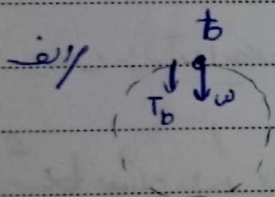 الف)
b
T_b
ω